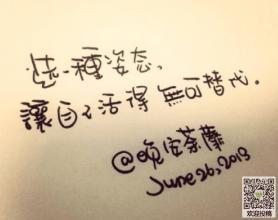 选一種姿态,
讓自己活得 無可替代.
@晚安荼蘼
June 26, 2013
欢迎投稿